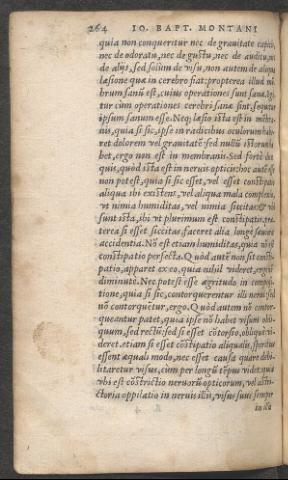 264 IO. BAPT. MONTANI
quia non conqueritur nec de grauitate capitis,
nec de odoratu, nec de gustu, nec de auditu, nec
de alijs, sed solùm de visu, non autem de aliqua
læsione quæ in cerebro fiat: propterea illud mē
brum sanū est, cuius operationes sunt sanæ. Igi
tur cùm operationes cerebri sanæ sint, sequitur
ipsum sanum esse. Neq; læsio ista est in mēbra
nis, quia si sic, ipse in radicibus oculorum habe
ret dolorem vel grauitatē: sed nullū istorum ha
bet, ergo non est in membranis. Sed fortè dicet
quis, quòd ista est in neruis opticis: hoc autē esse
non potest, quia si sic esset, vel esset constipatio
aliqua ibi existent, vel aliqua mala complexio,
vt nimia humiditas, vel nimia siccitas: & si
sunt ista, ibi vt plurimum est constipatio: præ
terea si esset siccitas, faceret alia longè sæuiora
accidentia. Nō est etiam humiditas, quia nō est
constipatio perfecta. Quòd autē non sit consti
patio, apparet ex eo, quia nihil videret, ergo
diminutè. Nec potest esse ægritudo in composi
tione, quia si sic, contorquerentur illi nerui, sed
nō contorquētur, ergo. Quòd autem nō contor
queantur patet, quia ipse nō habet visum obli
quum, sed rectū: sed si esset cōtorsio, obliquè vi
deret. etiam si esset cōstipatio aliqualis, spiritus
essent æquali modo, nec esset causa quare debi
litaretur visus, cùm per longū tēpus videt, quia
vbi est cōstrictio neruorū opticorum, vel alia
ctoria oppilatio in neruis illis, visus suus semper
in illa